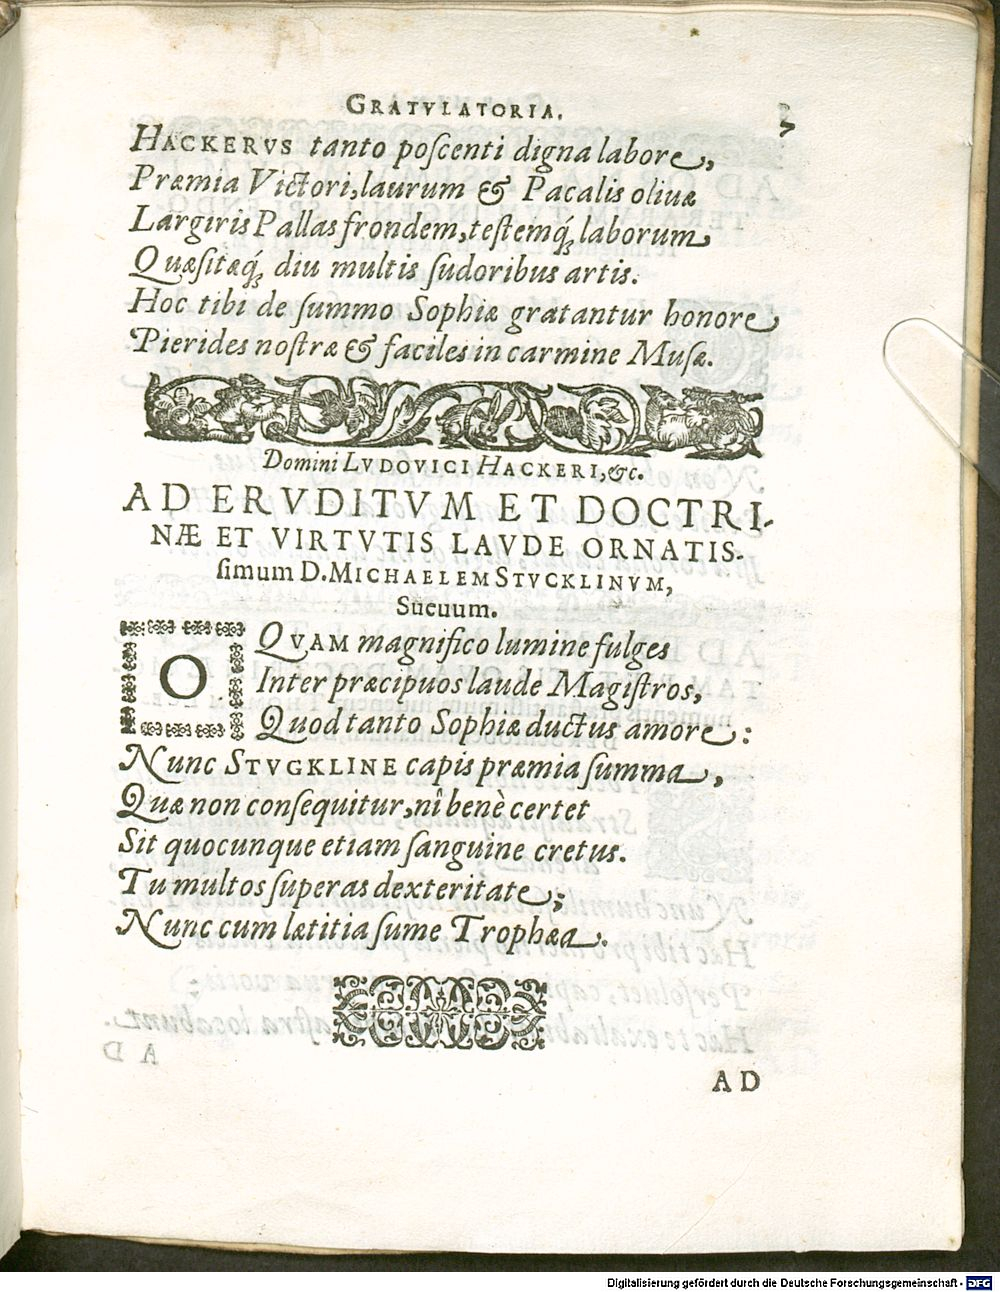 GRATVLATORIA.
HACKERVS tanto poſcenti digna labore,
Præmia Victori, laurum & Pacalis oliuæ
Largiris Pallas frondem, teſtemq́; laborum,
Quæſitæq́; diu multis ſudoribus artis.
Hoc tibi de ſummo Sophiæ gratantur honore
Pierides noſtræ & faciles in carmine Muſæ.
Domini LVDOVICI HACKERI, &c.
AD ERVDITVM ET DOCTRI-
NÆ ET VIRTVTIS LAVDE ORNATIS-
ſimum D. MICHAELEM STVCKLINVM,
Sueuum.
O QVAM magnifico lumine fulges
Inter præcipuos laude Magiſtros,
Quod tanto Sophiæ ductus amore:
Nunc STVGKLINE capis præmia ſumma,
Quæ non conſequitur, nî benè certet
Sit quocunque etiam ſanguine cretus.
Tu multos ſuperas dexteritate;
Nunc cum lætitia ſume Trophæa.
AD
Digitalisierung gefördert durch die Deutsche Forschungsgemeinschaft - DFG